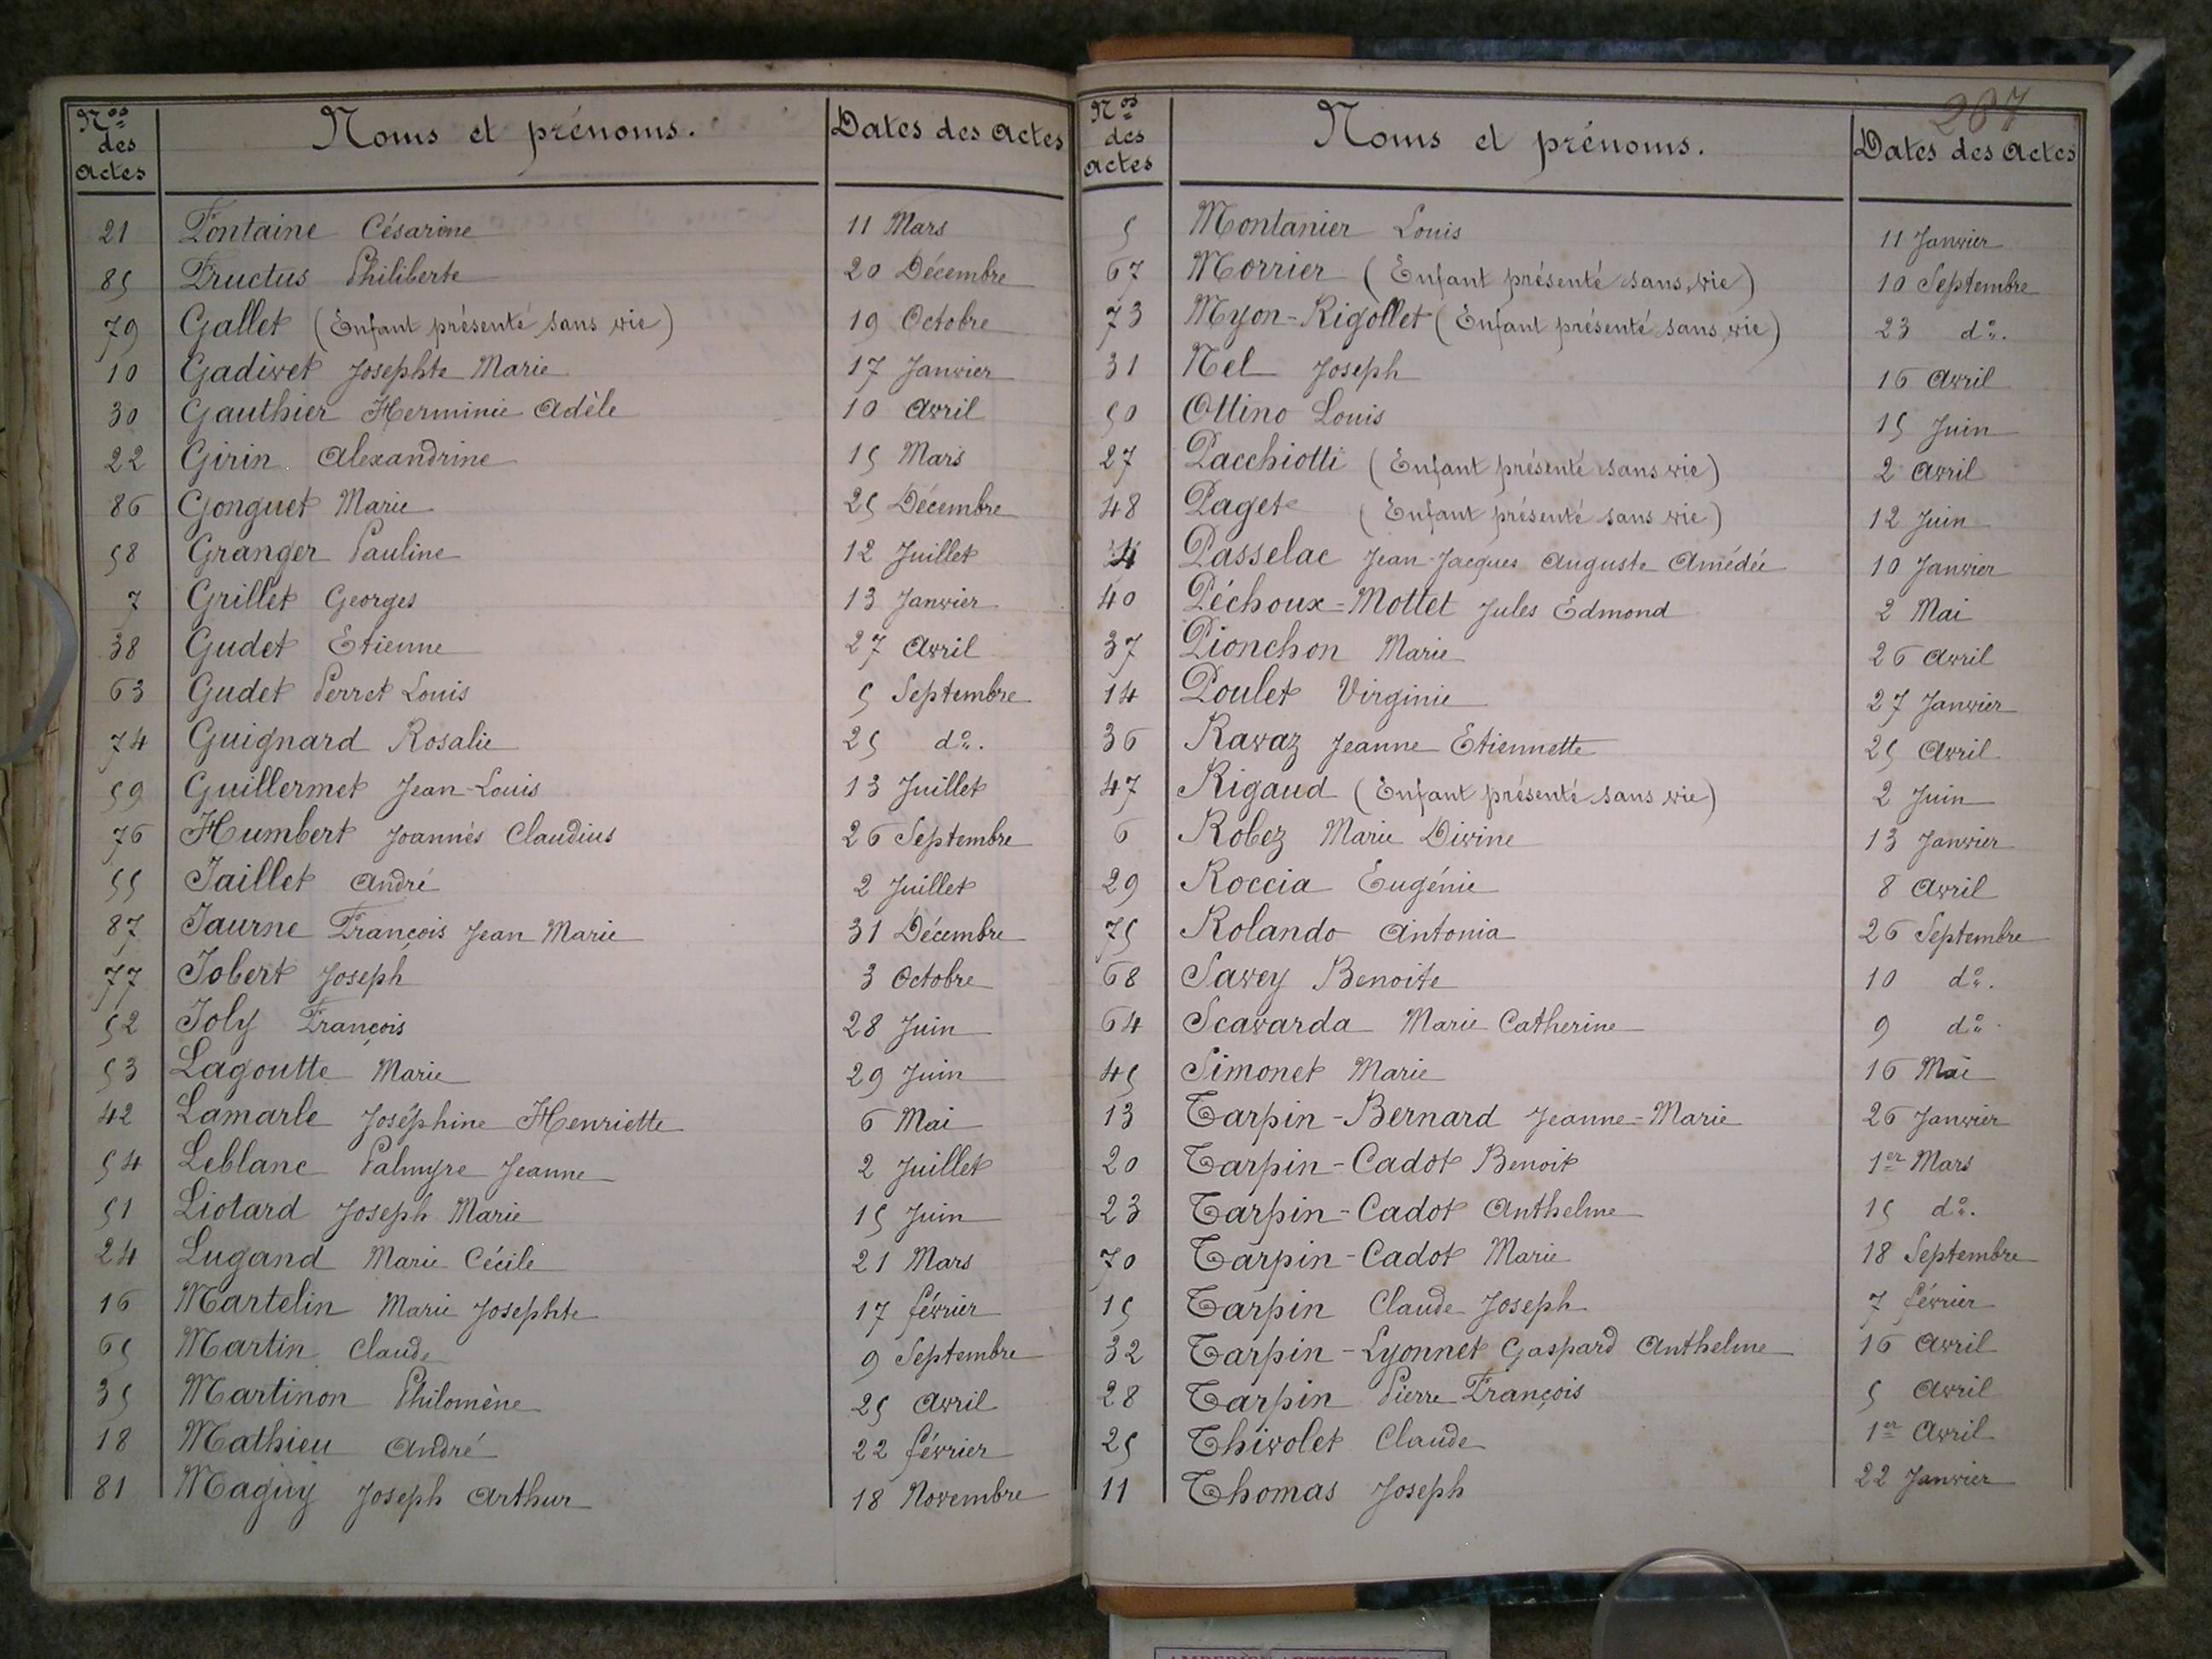 Nos des actes Noms et prénoms. Dates des actes
21 Fontaine Césarine 11 Mars
85 Fructus Philiberte 20 Décembre
79 Gallet (Enfant présenté sans vie) 19 Octobre
10 Gadivet Josephte Marie 17 Janvier
30 Gauthier Herminie Adèle 10 Avril
22 Girin Alexandrine 15 Mars
86 Gonguet Marie 25 Décembre
58 Granger Pauline 12 Juillet
7 Grillet Georges 13 Janvier
38 Gudet Etienne 27 Avril
63 Gudet Perret Louis 5 Septembre
74 Guignard Rosalie 25 do.
59 Guillermet Jean-Louis 13 Juillet
76 Humbert Joannès Claudius 26 Septembre
55 Jaillet André 2 Juillet
87 Jaurne François Jean Marie 31 Décembre
77 Jobert Joseph 3 Octobre
52 Joly François 28 Juin
53 Lagoutte Marie 29 Juin
42 Lamarle Joséphine Henriette 6 Mai
54 Leblanc Palmyre Jeanne 2 Juillet
51 Liotard Joseph Marie 15 Juin
24 Lugand Marie Cécile 21 Mars
16 Martelin Marie Josephte 17 février
65 Martin Claude 9 Septembre
35 Martinon Philomène 25 Avril
18 Mathieu André 22 février
81 Maguy Joseph Arthur 18 Novembre
267
Nos des actes Noms et prénoms. Dates des actes
5 Montanier Louis 11 Janvier
67 Morrier (Enfant présenté sans vie) 10 Septembre
73 Myon-Rigollet (Enfant présenté sans vie) 23 do.
31 Nel Joseph 16 Avril
50 Ottino Louis 15 Juin
27 Pacchiotti (Enfant présenté sans vie) 2 Avril
48 Paget (Enfant présenté sans vie) 12 Juin
4 Passelac Jean-Jacques Auguste Amédée 10 Janvier
40 Péchoux=Mottet Jules Edmond 2 Mai
37 Pionchon Marie 26 Avril
14 Poulet Virginie 27 Janvier
36 Ravaz Jeanne Etiennette 25 Avril
47 Rigaud (Enfant présenté sans vie) 2 Juin
6 Robez Marie Divine 13 Janvier
29 Roccia Eugénie 8 Avril
75 Rolando Antonia 26 Septembre
68 Savey Benoite 10 do.
64 Scavarda Marie Catherine 9 do
45 Simonet Marie 16 Mai
13 Tarpin-Bernard Jeanne-Marie 26 Janvier
20 Tarpin-Cadot Benoit 1er Mars
23 Tarpin-Cadot Anthelme 15 do.
70 Tarpin-Cadot Marie 18 Septembre
15 Tarpin Claude Joseph 7 février
32 Tarpin-Lyonnet Gaspard Anthelme 16 Avril
28 Tarpin Pierre François 5 Avril
25 Thivolet Claude 1er Avril
11 Thomas Joseph 22 Janvier